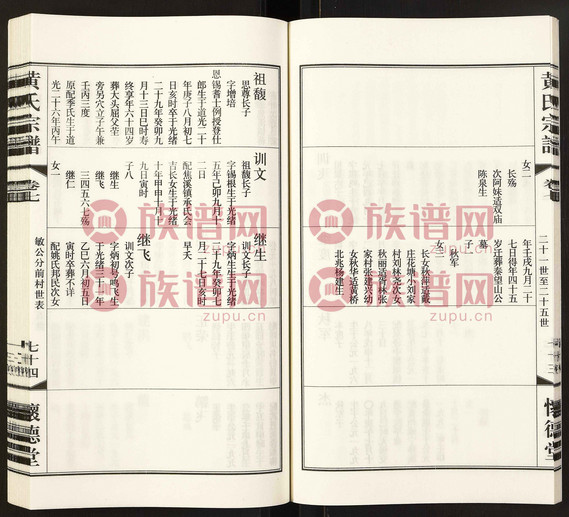 黄氏宗谱
卷七
二十一世至二十五世
怀德堂
女二
长殇
次阿妹适双庙
陈泉生
年壬戌九月二十
七日得年四十五
岁迁葬秦望山公
墓
子一
秋军
女二
长女秋萍适戴
庄花塘小刘家
村刘林尧次女
秋丽适蒋林张
家村张建兴幼
女秋华适黄桥
北兆杨建生
祖馥
思尊长子
字增培
恩锡耆士例授登仕
郎生于道光二十
年庚子八月初七
日亥时卒于光绪
二十九年癸卯九
月十三日巳时寿
终享年六十四岁
葬大头屈父茔
旁另穴立子午兼
壬丙三度
原配季氏生于道
光二十六年丙午
训文
祖馥长子
字锡根生于光绪
五年己卯九月十
二日
配焦溪镇承氏会
吉长女生于光绪
十年甲申十月十
九日寅时
子八
继生
继飞
三四五六七殇
继仁
女一
继生
训文长子
字炳生生于光绪
二十九年癸卯七
月二十七日亥时
早夭
继飞
训文次子
字炳初号鸣飞生
于光绪三十一年
乙巳六月初五日
寅时卒葬不详
配姚氏邦民次女
黄氏宗谱
卷七
敏公分前村世表
七十四
怀德堂
族谱网
zupu.cn
族谱网
zupu.cn
族谱网
zupu.cn
族谱网
zupu.cn